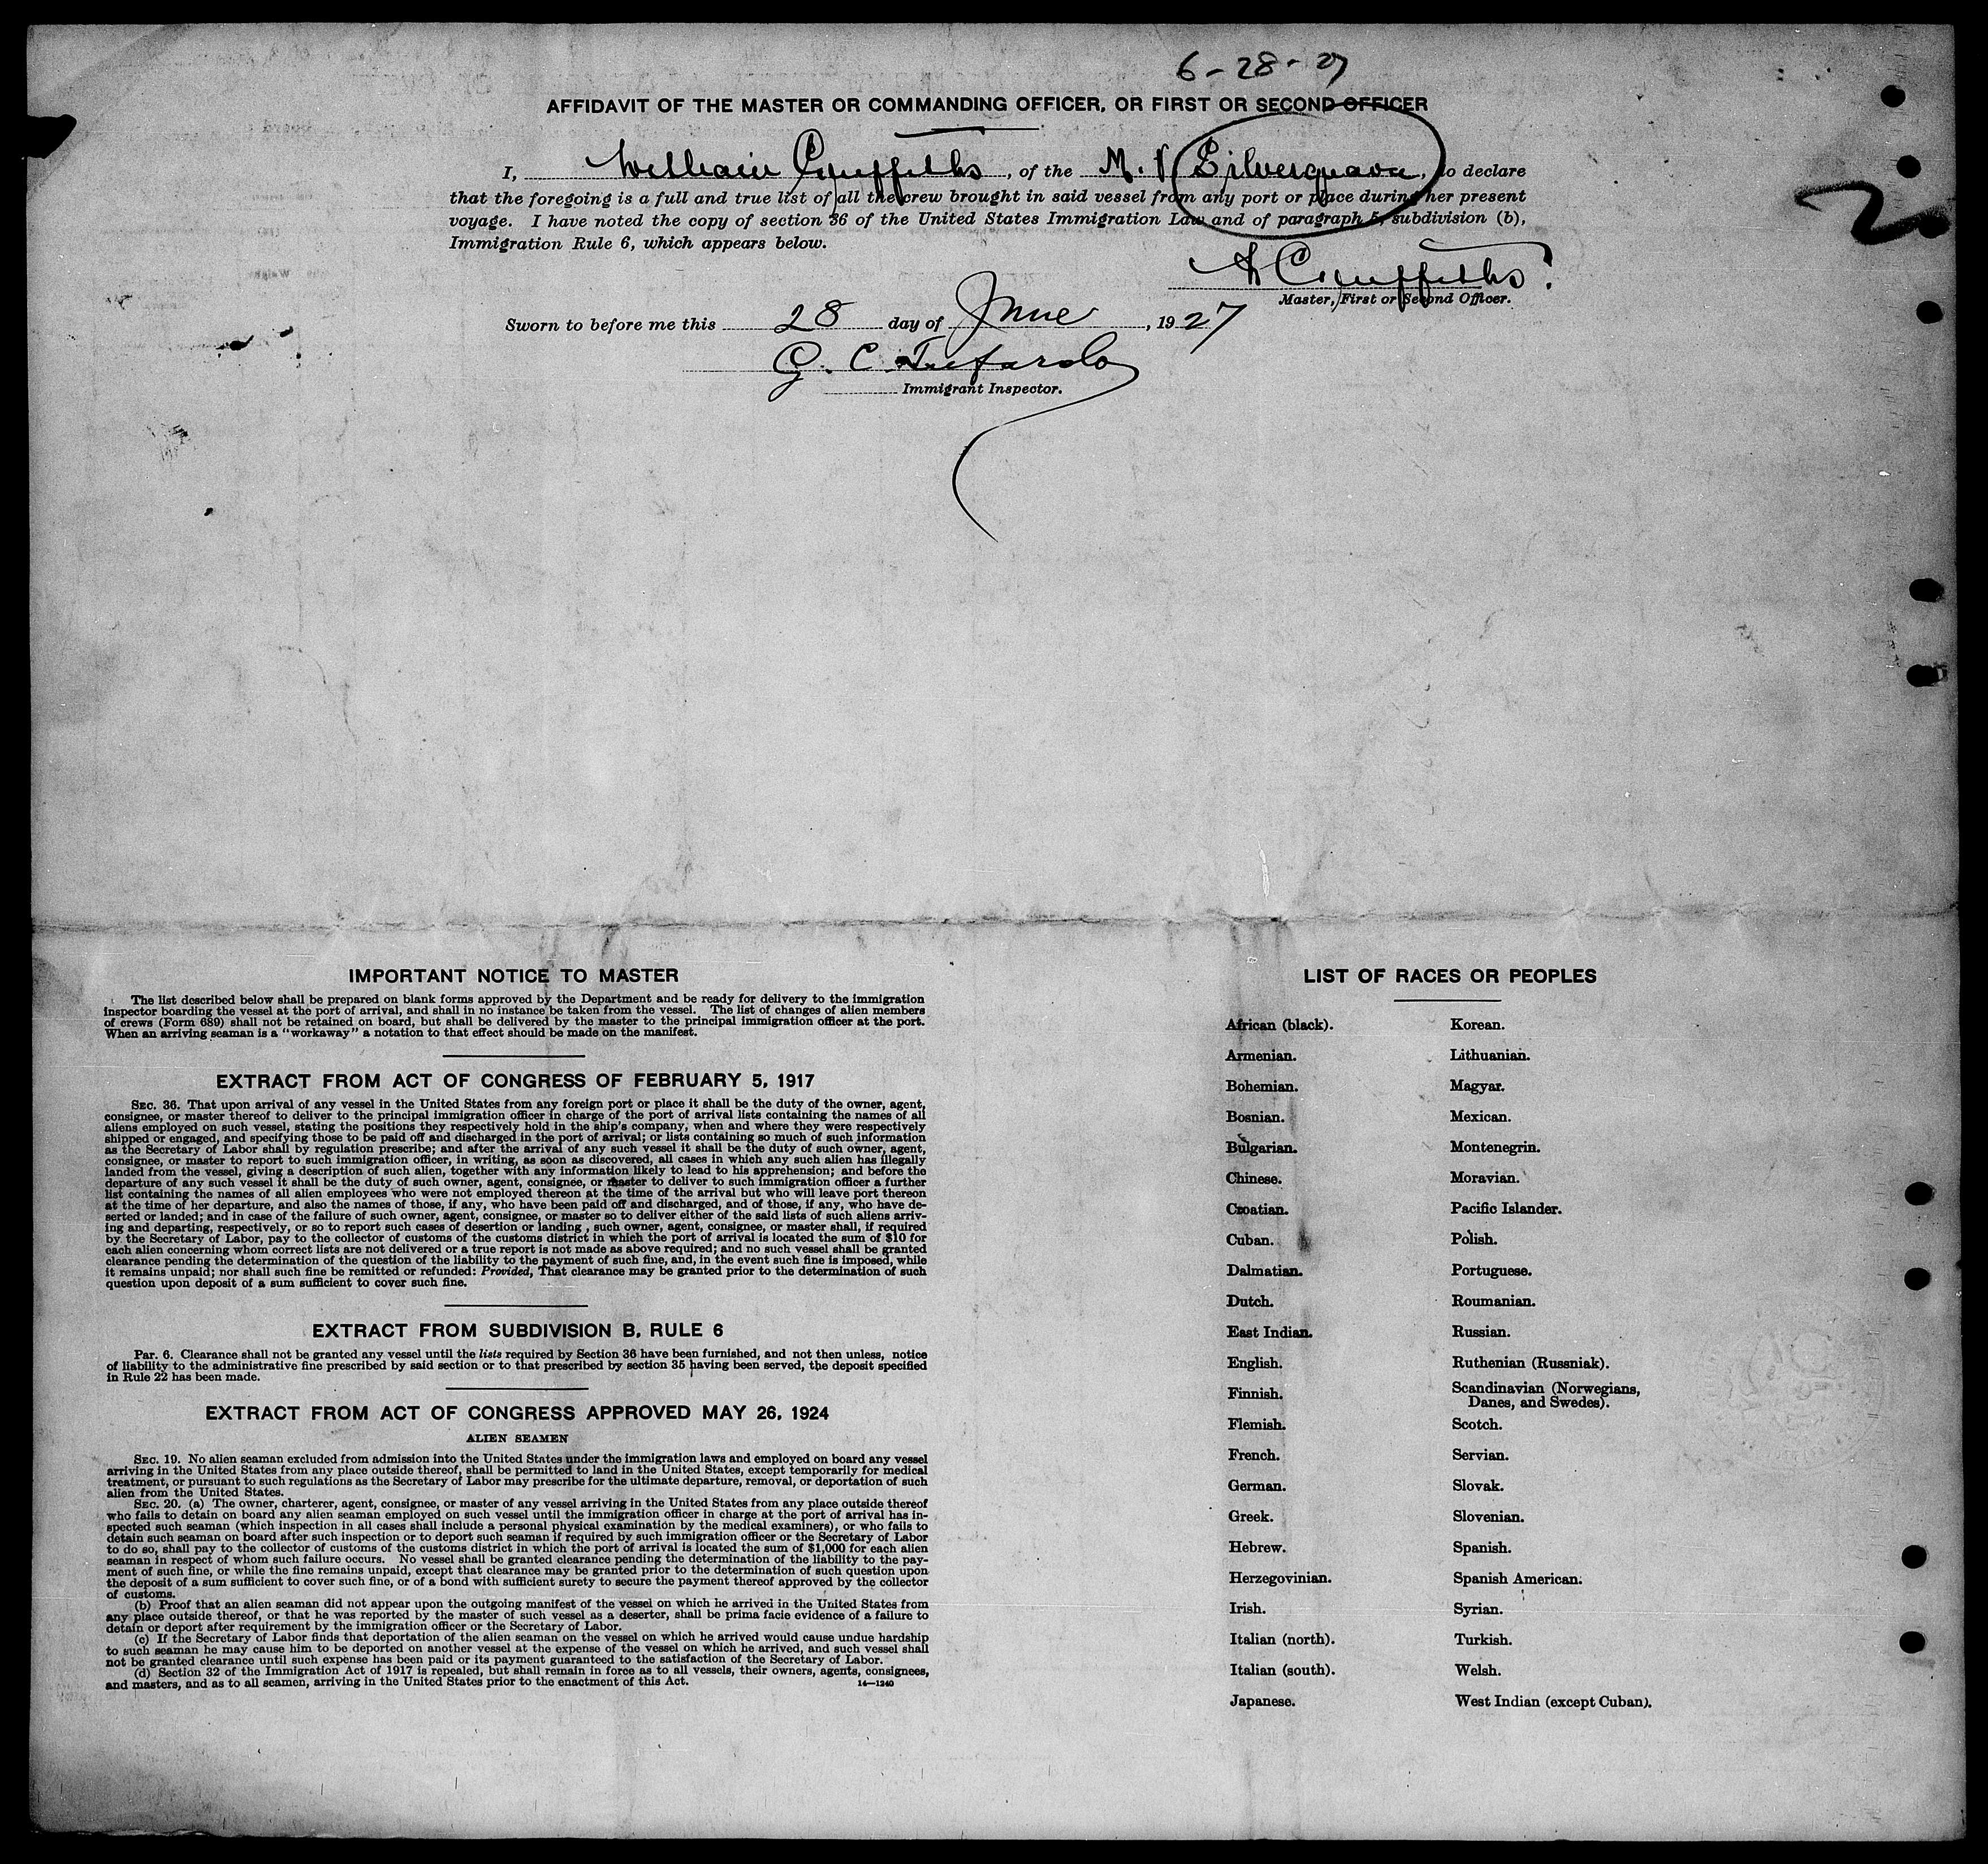 6-28-27
AFFIDAVIT OF THE MASTER OR COMMANDING OFFICER, OR FIRST OR SECOND OFFICER
I, William Griffiths, of the M.V Silverguava, do declare
that the foregoing is a full and true list of all the crew brought in said vessel from any port or place during her present
voyage. I have noted the copy of section 36 of the United States Immigration Law and of paragraph 5, subdivision (b),
Immigration Rule 6, which appears below.
W Griffiths
Master, First or Second Officer.
Sworn to before me this 28 day of June, 1927
G. C.
Immigrant Inspector.
2
IMPORTANT NOTICE TO MASTER
The list described below shall be prepared on blank forms approved by the Department and be ready for delivery to the immigration
inspector boarding the vessel at the port of arrival, and shall in no instance be taken from the vessel. The list of changes of alien members
of crews (Form 689) shall not be retained on board, but shall be delivered by the master to the principal immigration officer at the port.
When an arriving seaman is a "workaway" a notation to that effect should be made on the manifest.
EXTRACT FROM ACT OF CONGRESS OF FEBRUARY 5, 1917
SEC. 36. That upon arrival of any vessel in the United States from any foreign port or place it shall be the duty of the owner, agent,
consignee, or master thereof to deliver to the principal immigration officer in charge of the port of arrival lists containing the names of all
aliens employed on such vessel, stating the positions they respectively hold in the ship's company, when and where they were respectively
shipped or engaged, and specifying those to be paid off and discharged in the port of arrival; or lists containing so much of such information
as the Secretary of Labor shall by regulation prescribe; and after the arrival of any such vessel it shall be the duty of such owner, agent,
consignee, or master to report to such immigration officer, in writing, as soon as discovered, all cases in which any such alien has illegally
landed from the vessel, giving a description of such alien, together with any information likely to lead to his apprehension; and before the
departure of any such vessel it shall be the duty of such owner, agent, consignee, or master to deliver to such immigration officer a further
list containing the names of all alien employees who were not employed thereon at the time of the arrival but who will leave port thereon
at the time of her departure, and also the names of those, if any, who have been paid off and discharged, and of those, if any, who have de-
serted or landed; and in case of the failure of such owner, agent, consignee, or master so to deliver either of the said lists of such aliens arriv-
ing and departing, respectively, or so to report such cases of desertion or landing , such owner, agent, consignee, or master shall, if required
by the Secretary of Labor, pay to the collector of customs of the customs district in which the port of arrival is located the sum of $10 for
each alien concerning whom correct lists are not delivered or a true report is not made as above required; and no such vessel shall be granted
clearance pending the determination of the question of the liability to the payment of such fine, and, in the event such fine is imposed, while
it remains unpaid; nor shall such fine be remitted or refunded: Provided, That clearance may be granted prior to the determination of such
question upon deposit of a sum sufficient to cover such fine.
EXTRACT FROM SUBDIVISION B, RULE 6
Par. 6. Clearance shall not be granted any vessel until the lists required by Section 36 have been furnished, and not then unless, notice
of liability to the administrative fine prescribed by said section or to that prescribed by section 35 having been served, the deposit specified
in Rule 22 has been made.
EXTRACT FROM ACT OF CONGRESS APPROVED MAY 26, 1924
ALIEN SEAMEN
SEC. 19. No alien seaman excluded from admission into the United States under the immigration laws and employed on board any vessel
arriving in the United States from any place outside thereof, shall be permitted to land in the United States, except temporarily for medical
treatment, or pursuant to such regulations as the Secretary of Labor may prescribe for the ultimate departure, removal, or deportation of such
alien from the United States.
SEC. 20. (a) The owner, charterer, agent, consignee, or master of any vessel arriving in the United States from any place outside thereof
who fails to detain on board any alien seaman employed on such vessel until the immigration officer in charge at the port of arrival has in-
spected such seaman (which inspection in all cases shall include a personal physical examination by the medical examiners), or who fails to
detain such seaman on board after such inspection or to deport such seaman if required by such immigration officer or the Secretary of Labor
to do so, shall pay to the collector of customs of the customs district in which the port of arrival is located the sum of $1,000 for each alien
seaman in respect of whom such failure occurs. No vessel shall be granted clearance pending the determination of the liability to the pay-
ment of such fine, or while the fine remains unpaid, except that clearance may be granted prior to the determination of such question upon
the deposit of a sum sufficient to cover such fine, or of a bond with sufficient surety to secure the payment thereof approved by the collector
of customs.
(b) Proof that an alien seaman did not appear upon the outgoing manifest of the vessel on which he arrived in the United States from
any place outside thereof, or that he was reported by the master of such vessel as a deserter, shall be prima facie evidence of a failure to
detain or deport after requirement by the immigration officer or the Secretary of Labor.
(c) If the Secretary of Labor finds that deportation of the alien seaman on the vessel on which he arrived would cause undue hardship
to such seaman he may cause him to be deported on another vessel at the expense of the vessel on which he arrived, and such vessel shall
not be granted clearance until such expense has been paid or its payment guaranteed to the satisfaction of the Secretary of Labor.
(d) Section 32 of the Immigration Act of 1917 is repealed, but shall remain in force as to all vessels, their owners, agents, consignees,
and masters, and as to all seamen, arriving in the United States prior to the enactment of this Act.
14—1240
LIST OF RACES OR PEOPLES
African (black). Korean.
Armenian. Lithuanian.
Bohemian. Magyar.
Bosnian. Mexican.
Bulgarian. Montenegrin.
Chinese. Moravian.
Croatian. Pacific Islander.
Cuban. Polish.
Dalmatian. Portuguese.
Dutch. Roumanian.
East Indian. Russian.
English. Ruthenian (Russniak).
Finnish. Scandinavian (Norwegians,
Danes, and Swedes).
Flemish. Scotch.
French. Servian.
German. Slovak.
Greek. Slovenian.
Hebrew. Spanish.
Herzegovinian. Spanish American.
Irish. Syrian.
Italian (north). Turkish.
Italian (south). Welsh.
Japanese. West Indian (except Cuban).